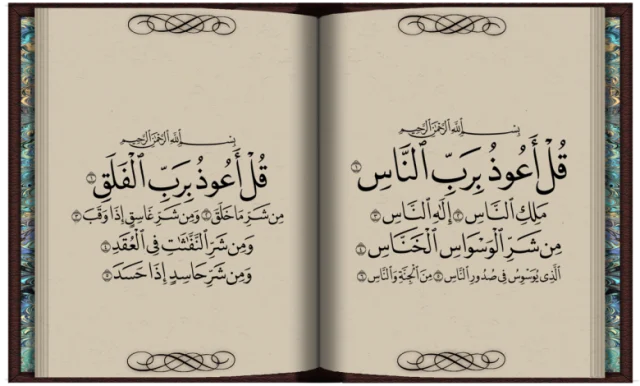 بسم الله الرحمن الرحيم
قُلْ أَعُوذُ بِرَبِّ ٱلنَّاسِ ١
مَلِكِ ٱلنَّاسِ ٢ إِلَٰهِ ٱلنَّاسِ ٣
مِن شَرِّ ٱلْوَسْوَاسِ ٱلْخَنَّاسِ ٤
ٱلَّذِى يُوَسْوِسُ فِى صُدُورِ ٱلنَّاسِ ٥ مِنَ ٱلْجِنَّةِ وَٱلنَّاسِ ٦
بسم الله الرحمن الرحيم
قُلْ أَعُوذُ بِرَبِّ ٱلْفَلَقِ ١
مِن شَرِّ مَا خَلَقَ ٢ وَمِن شَرِّ غَاسِقٍ إِذَا وَقَبَ ٣
وَمِن شَرِّ ٱلنَّفَّٰثَٰتِ فِى ٱلْعُقَدِ ٤
وَمِن شَرِّ حَاسِدٍ إِذَا حَسَدَ ٥